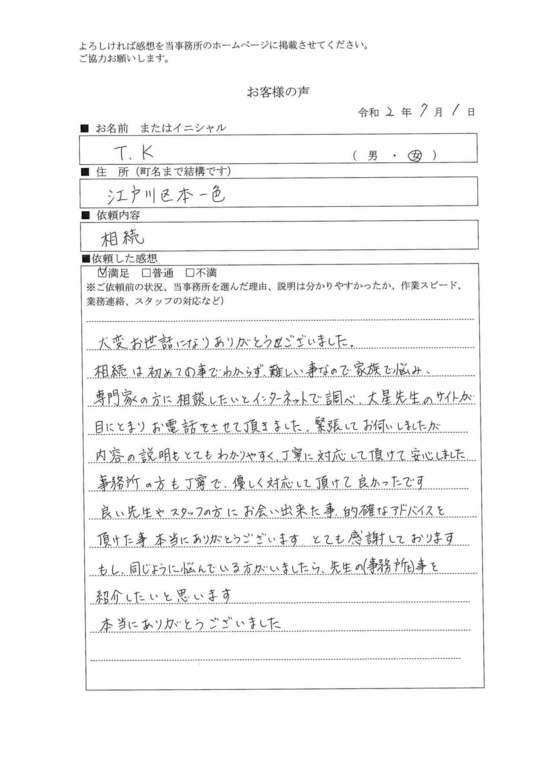 よろしければ感想を当事務所のホームページに掲載させてください。
ご協力お願いします。
お客様の声
令和 2 年 7 月 1 日
■ お名前 またはイニシャル
T.K ( 男 ・ 女 )
■ 住 所(町名まで結構です)
江戸川区本一色
■ 依頼内容
相続
■依頼した感想
☑満足 □普通 □不満
※ご依頼前の状況、当事務所を選んだ理由、説明は分かりやすかったか、作業スピード、
業務連絡、スタッフの対応など)
大変お世話になりありがとうございました。
相続は初めての事でわからず、難しい事なので家族で悩み、
専門家の方に相談したいとインターネットで調べ、大星先生のサイトが
目にとまりお電話をさせて頂きました。緊張してお伺いしましたが
内容の説明もとてもわかりやすく、丁寧に対応して頂けて安心しました。
事務所の方も丁寧で、優しく対応して頂けて良かったです
良い先生やスタッフの方にお会い出来た事、的確なアドバイスを
頂けた事 本当にありがとうございます とても感謝しております
もし、同じように悩んでいる方がいましたら、先生の(事務所も)事を
紹介したいと思います
本当にありがとうございました